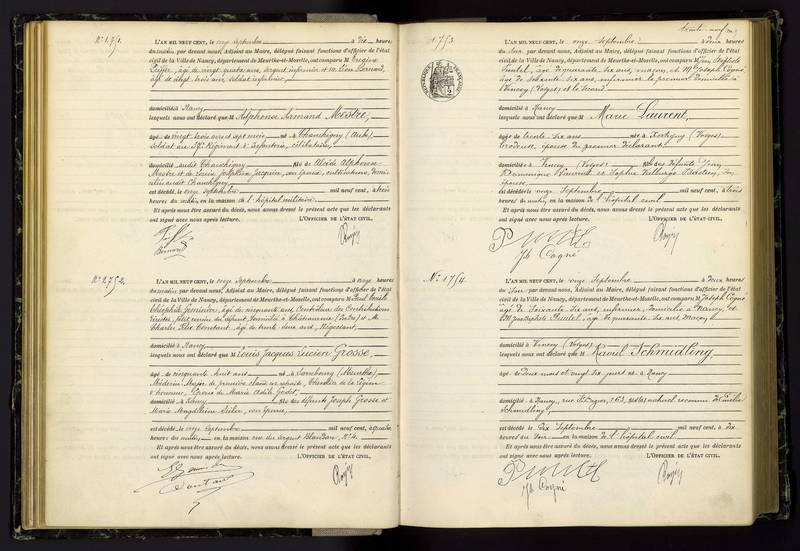 N° 1751.
L'AN MIL NEUF CENT, le onze septembre à dix heures
du matin par devant nous, Adjoint au Maire, délégué faisant fonctions d'officier de l'état
civil de la Ville de Nancy, département de Meurthe-et-Moselle, ont comparu M
âgé de vingt quatre ans, sergent infirmier et M. Léon Bernard,
âgé de vingt trois ans soldat infirmier
domiciliés à Nancy
lesquels nous ont déclaré que M Alphonse Armand Mestre,
âgé de vingt trois ans et sept mois né à Chauchigny (Aube)
soldat au 37e Régiment d'Infanterie, célibataire,
domicilié audit Chauchigny fils de Alcide Alphonse
Mestre et de Louise Joséphine Jacquier, son épouse, cultivateurs, domi-
ciliés audit Chauchigny
est décédé, le onze septembre mil neuf cent, à trois
heures du matin, en la maison de l'hôpital militaire.
Et après nous être assuré du décès, nous avons dressé le présent acte que les déclarants
ont signé avec nous après lecture. L'OFFICIER DE L'ÉTAT CIVIL,
Bernard
N° 1752.
L'AN MIL NEUF CENT, le onze septembre à onze heures
du matin par devant nous, Adjoint au Maire, délégué faisant fonctions d'officier de l'état
civil de la Ville de Nancy, département de Meurthe-et-Moselle, ont comparu M Paul Emile
Théophile âgé de cinquante ans, Contrôleur des Contributions
directes, domicilié à Châteauroux (Indre) et M.
Charles Félix Constant, âgé de trente deux ans, Négociant,
domicilié à Nancy
lesquels nous ont déclaré que M Louis Jacques Lucien Grosse,
âgé de cinquante huit ans né à Sarrebourg (Meurthe)
Médecin Major de première classe en retraite, Chevalier de la Légion
d'honneur, époux de Marie Adèle Godet,
domicilié à Nancy, fils des défunts Joseph Grosse et
Marie Magdeleine son épouse,
est décédé, le onze septembre mil neuf cent, à quatre
heures du matin, en la maison rue du Sergent Blandan, N° 4.
Et après nous être assuré du décès, nous avons dressé le présent acte que les déclarants
ont signé avec nous après lecture. L'OFFICIER DE L'ÉTAT CIVIL,
1753.
L'AN MIL NEUF CENT, le onze Septembre à deux heures
du soir par devant nous, Adjoint au Maire, délégué faisant fonctions d'officier de l'état
civil de la Ville de Nancy, département de Meurthe-et-Moselle, ont comparu M Jean Baptiste
âgé de quarante six ans, maçon, et M. Joseph Cogné
âgé de soixante six ans, infirmier le premier domicilié à
Vincey (Vosges) et le second
domicilié à Nancy
lesquels nous ont déclaré que M Marie Laurent,
âgée de trente six ans née à Xertigny (Vosges)
Brodeuse, épouse du premier déclarant
domiciliée à Vincey (Vosges) fille des défunts Jean
Dominique Laurent et Sophie son
épouse
est décédée le onze Septembre mil neuf cent, à trois
heures du matin, en la maison de l'hôpital civil
Et après nous être assuré du décès, nous avons dressé le présent acte que les déclarants
ont signé avec nous après lecture. L'OFFICIER DE L'ÉTAT CIVIL,
Jh Cogné
N° 1754.
L'AN MIL NEUF CENT, le onze Septembre à deux heures
du soir par devant nous, Adjoint au Maire, délégué faisant fonctions d'officier de l'état
civil de la Ville de Nancy, département de Meurthe-et-Moselle, ont comparu M Joseph Cogné
âgé de soixante six ans, infirmier, domicilié à Nancy, et
M Jean Baptiste âgé de quarante six ans, maçon
domicilié à Vincey (Vosges)
lesquels nous ont déclaré que M Raoul Schmidling,
âgé de deux mois et vingt six jours né à Nancy
domicilié à Nancy, fils naturel reconnu d'Emélie
Schmidling
est décédé, le dix Septembre mil neuf cent, à dix
heures du soir en la maison de l'hôpital civil
Et après nous être assuré du décès, nous avons dressé le présent acte que les déclarants
ont signé avec nous après lecture. L'OFFICIER DE L'ÉTAT CIVIL,
Jh Cogné